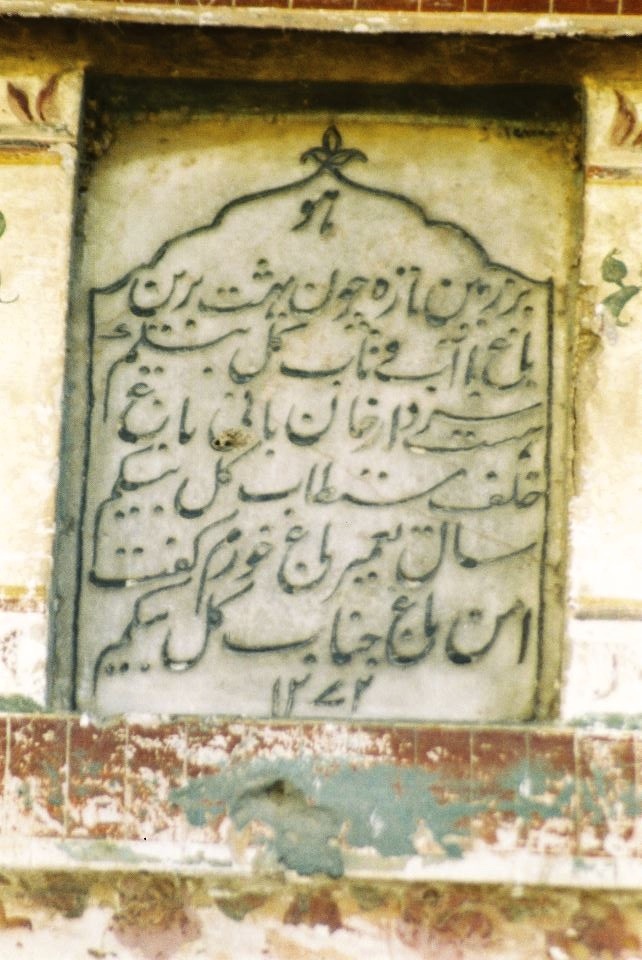 ہو
بر زمین تازہ چون بہشت برین
باغ با آب و تاب گل بیگم
ہست سردار خان بانی باغ
خلف مستطاب گل بیگم
سال تعمیر باغ خورم گفت
امن باغ جناب گل بیگم
۱۲۷۲